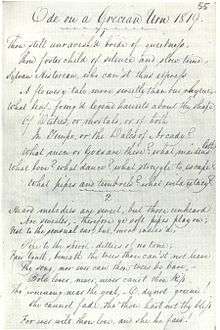 55
Ode on a Grecian Urn 1819.
Thou still unravished bride of quietness,
Thou foster child of silence and slow time,
Sylvan Historian, who canst thus express
A flowery tale more sweetly than our rhyme,
What leaf fring'd legend haunts about thy shape
Of Deities, or mortals, or of both
In Tempe, or the Dales of Arcady?
What men or Gods are these? what maidens loth?
What love? what dance? what struggle to escape?
What pipes and timbrels? what wild extacy?
2
Heard melodies are sweet, but those unheard
Are sweeter; therefore ye soft pipes play on;
Not to the sensual ear but, more endear'd,
Pipe to the spirit, ditties of no tone;
Fair Youth, beneath the trees thou canst not leave
Thy song, nor ever can those trees be bare,
Bold lover, never, never canst thou kiss
Tho' winning near the goal O do not grieve!
She cannot fade, tho' thou hast not thy bliss
For ever wilt thou love, and she be fair!